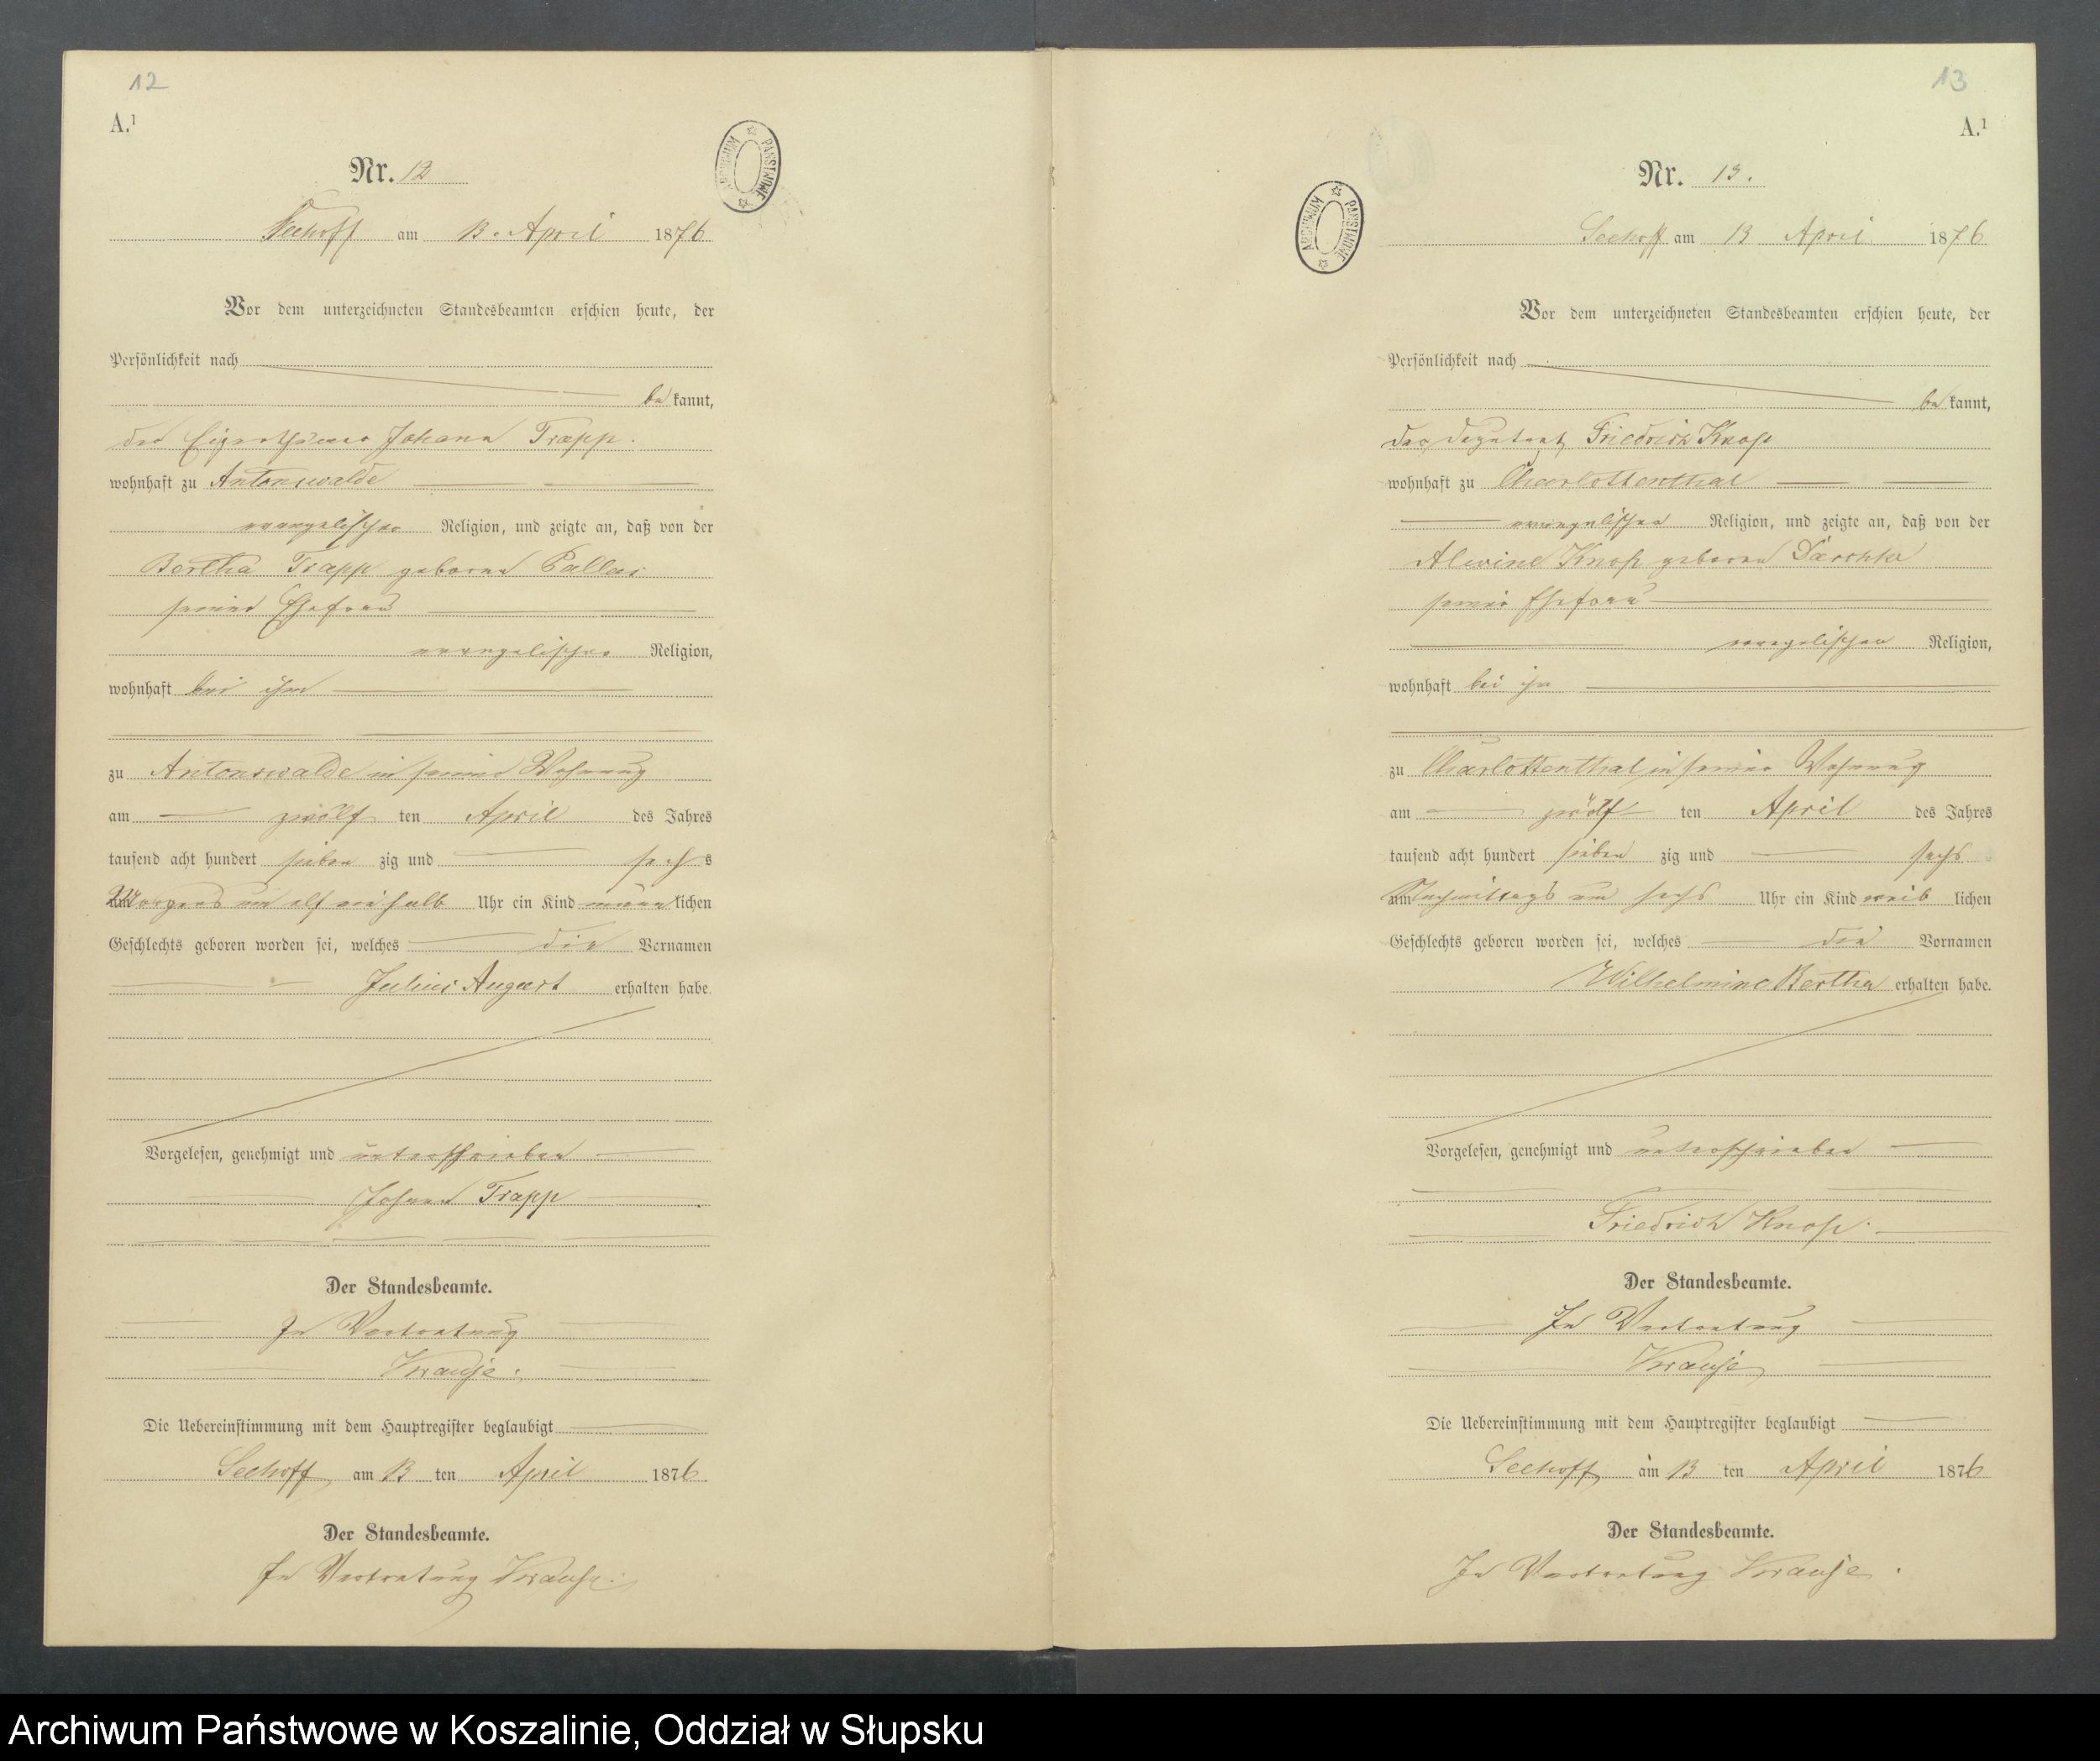 12
A.¹
Nr. 12
Seehoff am 13. April 1876
Vor dem unterzeichneten Standesbeamten erschien heute, der
Persönlichkeit nach
bekannt,
der Eigenthümer Johann Trapp.
wohnhaft zu Antonswalde
evangelischer Religion, und zeigte an, daß von der
Bertha Trapp geborne Pallas
seiner Ehefrau
evangelischer Religion,
wohnhaft bei ihm
zu Antonswalde in seiner Wohnung
am zwölf ten April des Jahres
tausend acht hundert sieben zig und sechs
Morgens um elf ein halb Uhr ein Kind männlichen
Geschlechts geboren worden sei, welches die Vornamen
Julius August erhalten habe.
Vorgelesen, genehmigt und unterschrieben
Johann Trapp
Der Standesbeamte.
In Vertretung
Krause.
Die Uebereinstimmung mit dem Hauptregister beglaubigt
Seehoff am 13 ten April 1876
Der Standesbeamte.
In Vertretung Krause.
ARCHIWUM PAŃSTWOWE
13
A.¹
Nr. 13.
Seehoff am 13 April 1876
ARCHIWUM PAŃSTWOWE
Vor dem unterzeichneten Standesbeamten erschien heute, der
Persönlichkeit nach
bekannt,
der Deputant Friedrich Knop
wohnhaft zu Charlottenthal
evangelischen Religion, und zeigte an, daß von der
Alwine Knop geboren
seiner Ehefrau
evangelischen Religion,
wohnhaft bei ihm
zu Charlottenthal in seiner Wohnung
am zwölf ten April des Jahres
tausend acht hundert sieben zig und sechs
um Nachmittags um sechs Uhr ein Kind weib lichen
Geschlechts geboren worden sei, welches die Vornamen
Wilhelmine Bertha erhalten habe.
Vorgelesen, genehmigt und unterschrieben
Friedrich Knop.
Der Standesbeamte.
In Vertretung
Krause
Die Uebereinstimmung mit dem Hauptregister beglaubigt
Seehoff am 13 ten April 1876
Der Standesbeamte.
In Vertretung Krause.
Archiwum Państwowe w Koszalinie, Oddział w Słupsku